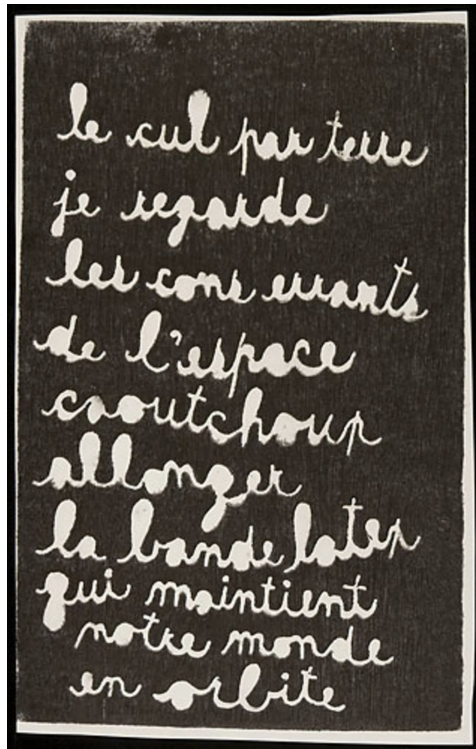 le cul par terre
je regarde
les cons errants
de l'espace
caoutchoux
allonger
la bande latex
qui maintient
notre monde
en orbite